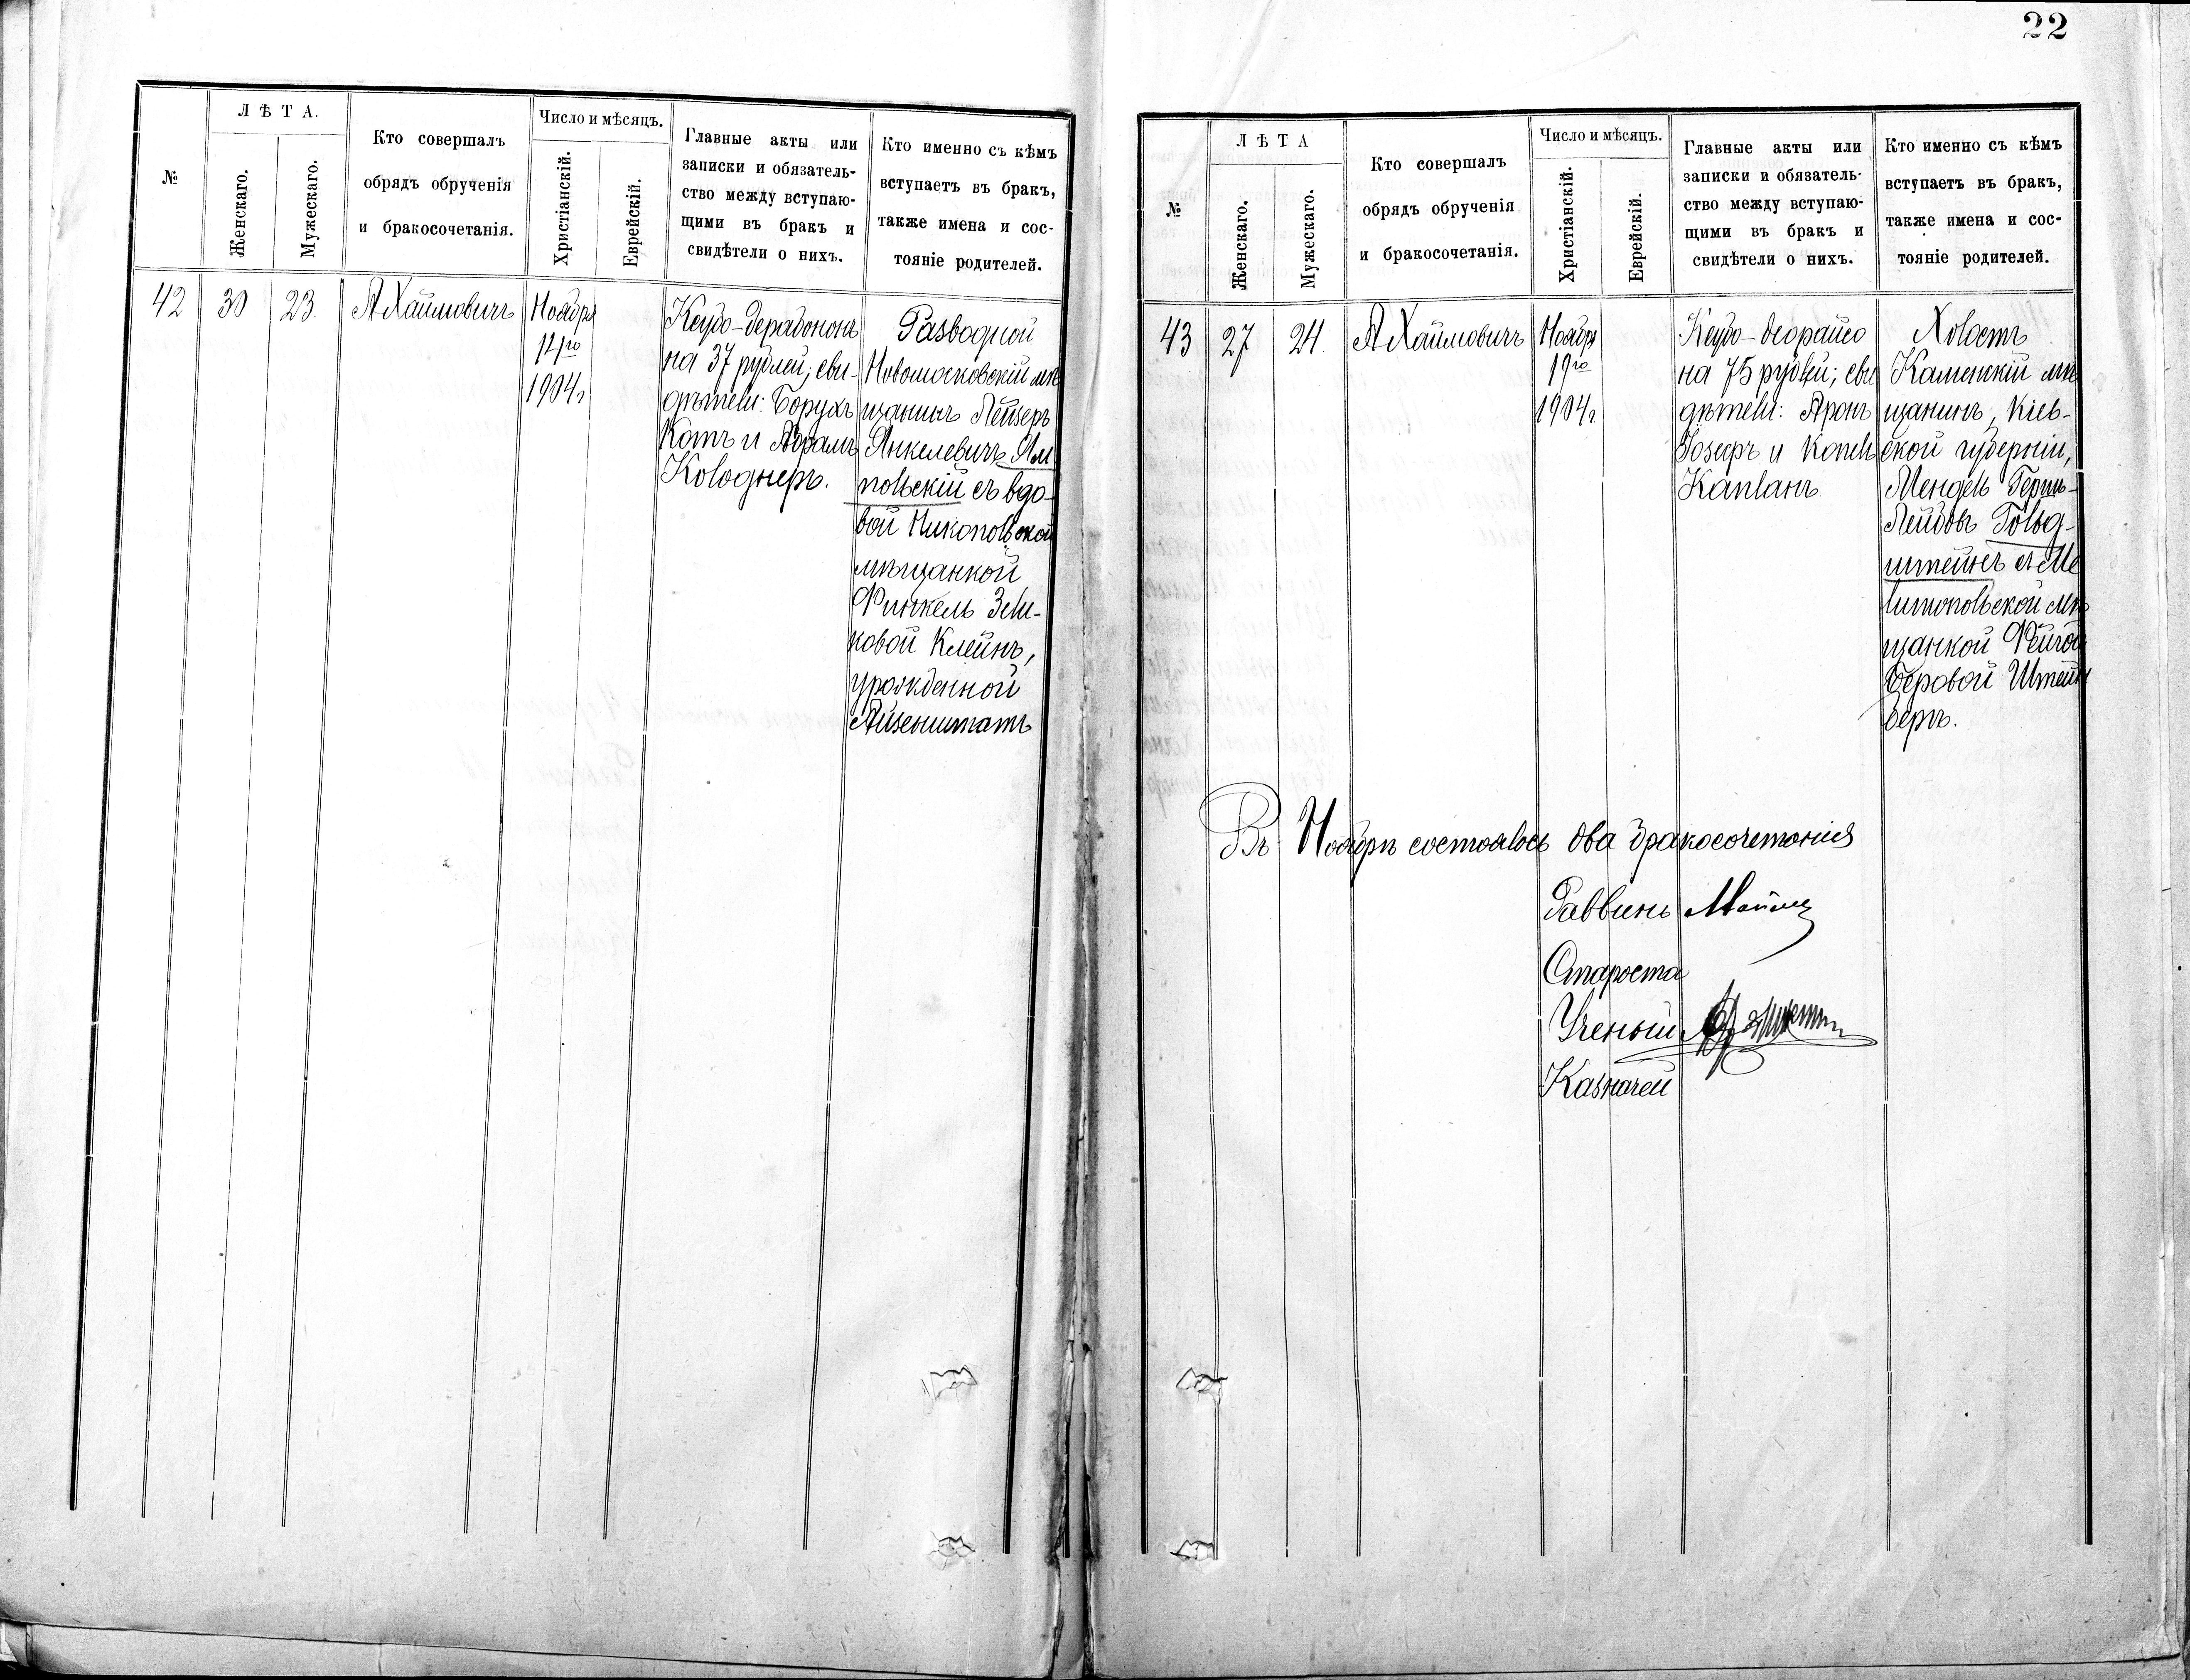 22
№
ЛѢТА.
Женскаго.
Мужескаго.
Кто совершалъ
обрядъ обрученія
и бракосочетанія.
Число и мѣсяцъ.
Христіанскій.
Еврейскій.
Главные акты или
записки и обязатель-
ство между вступаю-
щими въ бракъ и
свидѣтели о нихъ.
Кто именно съ кѣмъ
вступаетъ въ бракъ,
также имена и сос-
тояніе родителей.
42
30
23.
А Хаймовичъ
Ноября
14го
1904г
Ксубо-дерабононъ
на 37 рублей; сви-
дѣтели: Борухъ
Кацъ и Абрамъ
Колоднеръ.
Разводной
Новомосковскій мѣ
щанинъ Лейзеръ
Янкелевичъ Ям
польскій съ вдо-
вой Никопольской
мѣщанкой
Финкель Зели-
ковой Клейнъ,
урожденной
Айзенштатъ
№
ЛѢТА
Женскаго.
Мужескаго.
Кто совершалъ
обрядъ обрученія
и бракосочетанія.
Число и мѣсяцъ.
Христіанскій.
Еврейскій.
Главные акты или
записки и обязатель-
ство между вступаю-
щими въ бракъ и
свидѣтели о нихъ.
Кто именно съ кѣмъ
вступаетъ въ бракъ,
также имена и сос-
тояніе родителей.
43
27
24.
А Хаймовичъ
Ноября
19го
1904г.
Ксубо-деорайсо
на 75 рублей; сви
дѣтели: Аронъ
и
Капланъ.
Холостъ
Каменскій мѣ
щанинъ, Кіев-
ской губерніи,
Мендель Герш-
Лейбовъ Гольд-
штейнъ съ Ме
литопольской мѣ
щанкой Фейгой
Беровой Штейн
бергъ.
Въ Ноябрѣ состоялось два бракосочетанія
Раввинъ
Староста
Ученый
Казначей